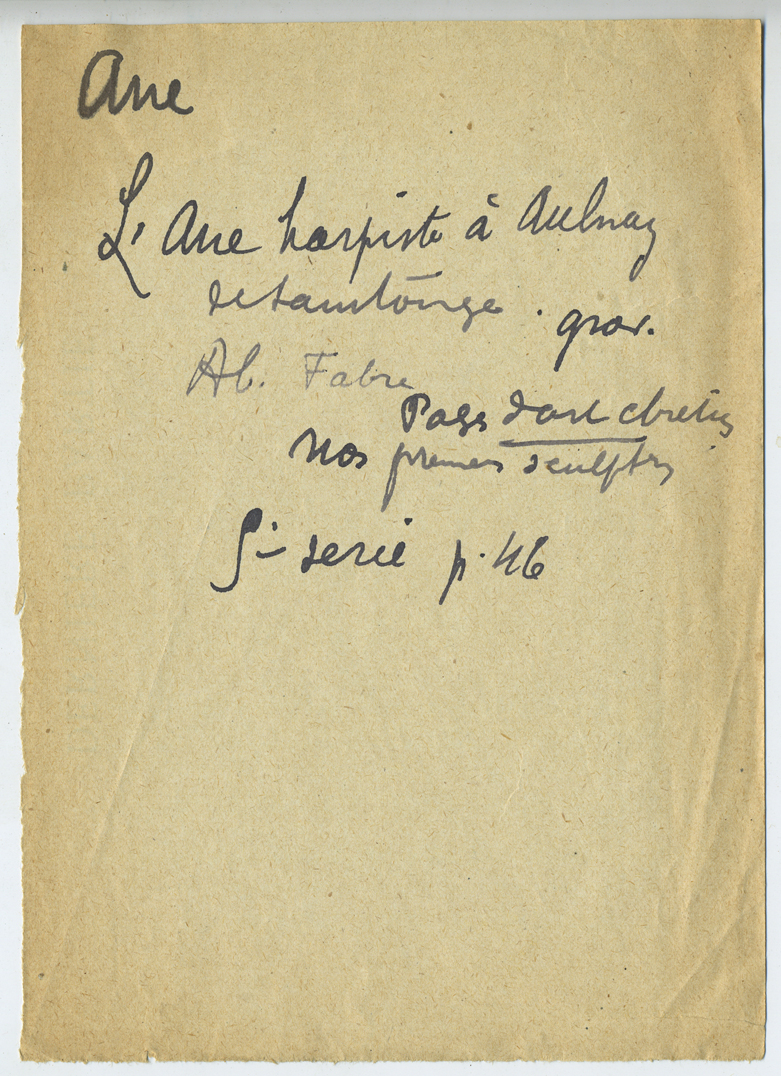 Ane
L'Ane harpiste à Aulnay
de Saintonge. grav.
Ab. Fabre
Pages d'art chretien
Nos premiers sculptrs
serie p. 46